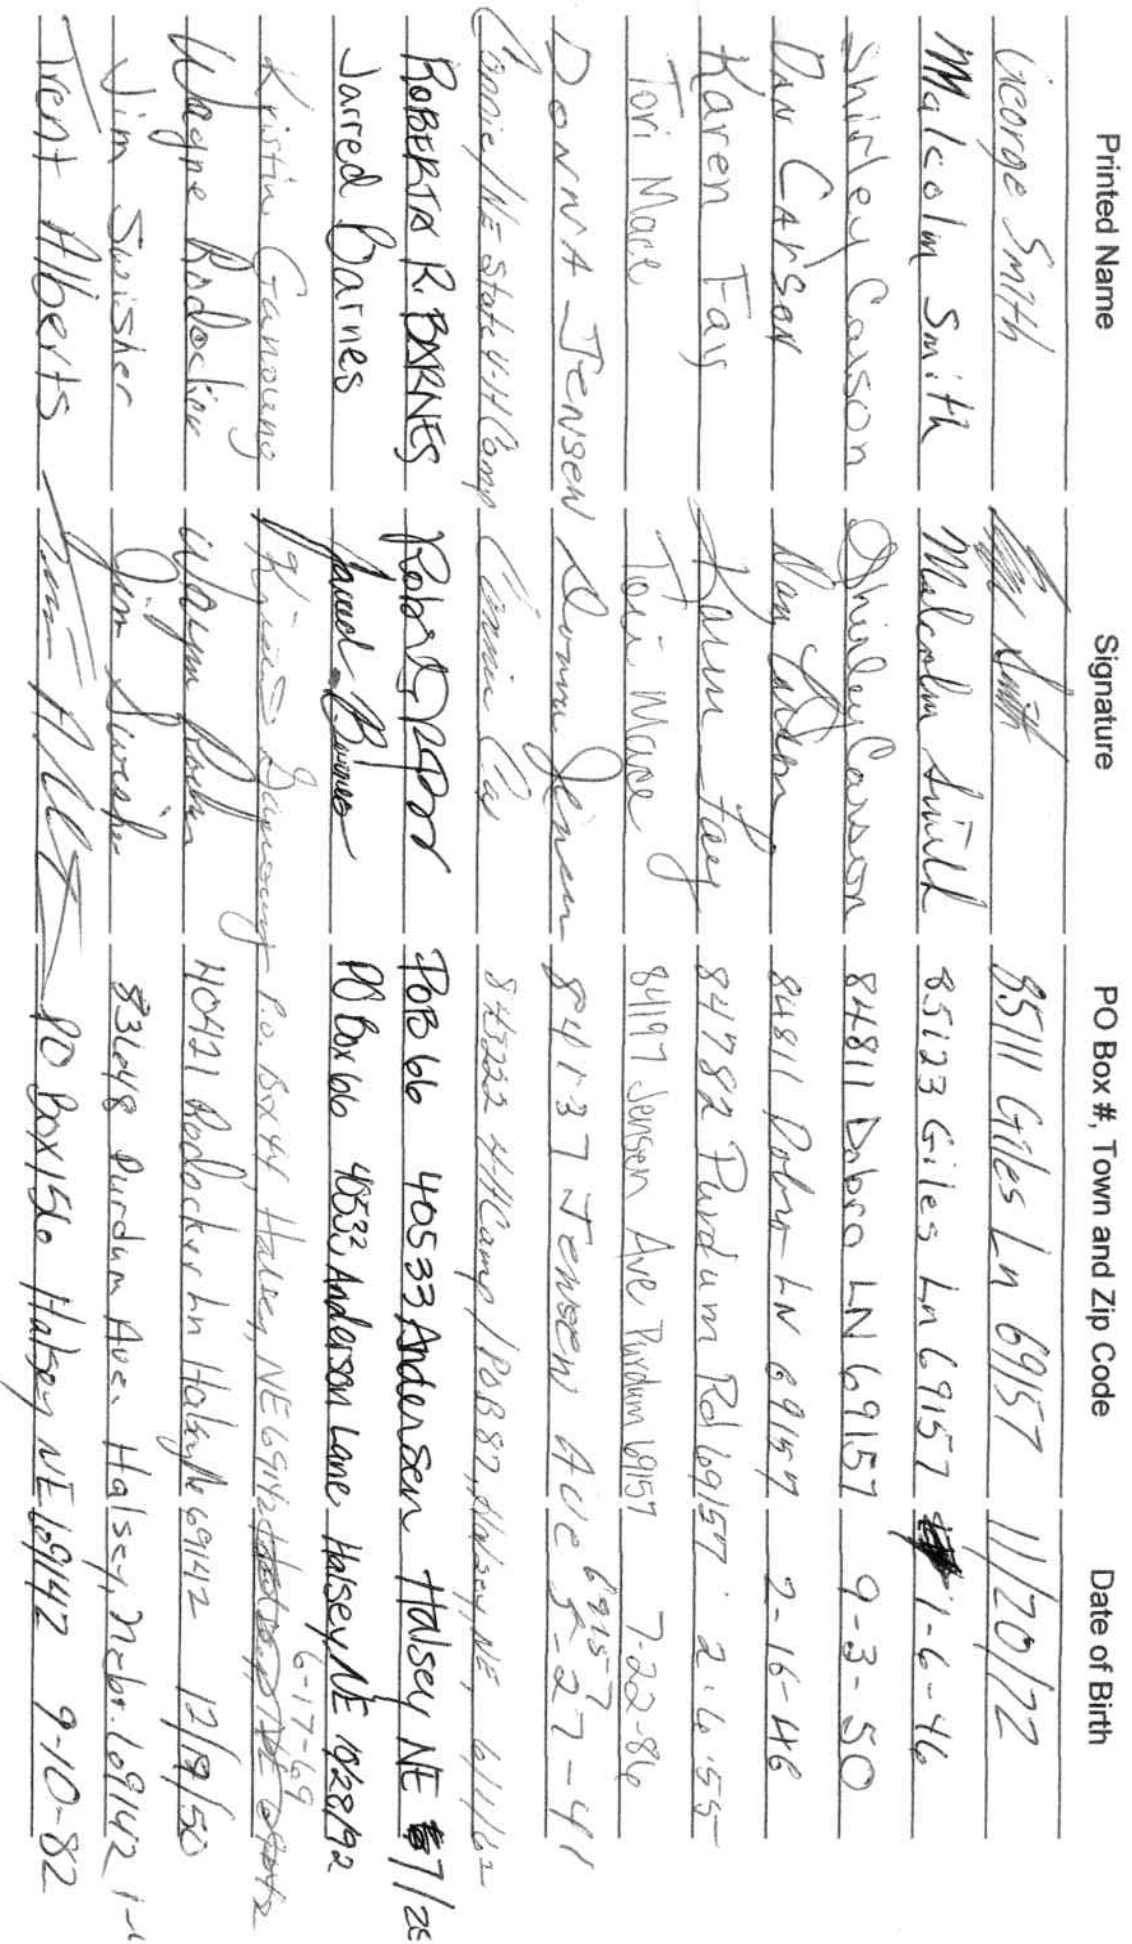 Printed Name Signature PO Box #, Town and Zip Code Date of Birth
George Smith Smith 85111 Giles Ln 69157 11/20/72
Malcolm Smith Malcolm Smith 85123 Giles Ln 69157 1-6-46
Shirley Carson Shirley Carson 84811 Dobro LN 69157 9-3-50
Dan Carson Dan Carson 84811 Dobro LN 69157 2-16-46
Karen Fay Karen Fay 84782 Purdum Rd 69157 2-6-55
Tori Mace Tori Mace 84197 Jensen Ave Purdum 69157 7-22-86
DONNA JENSEN Donna Jensen 84137 JENSEN AVE 69157 5-27-41
Connie/NE State 4-H Camp Connie 84322 4HCamp/POB 87, Halsey, NE, 6/1/62
ROBERTA R. BARNES POB 66 40533 Andersen Halsey NE 7/28
Jarred Barnes Jarred Barnes PO Box 66 40533 Anderson Lane Halsey, NE 10/28/92
Kristin Ganoung Kristin Ganoung P.O. Box 44 Halsey, NE 69142 6-17-69
Wayne Rodocker Wayne 40421 Rodocker Ln Halsey Ne 69142 12/9/50
Jim Swisher Jim Swisher 83648 Purdum Ave. Halsey, Nebr. 69142
Trent Alberts PO Box 156 Halsey NE 69142 9-10-82